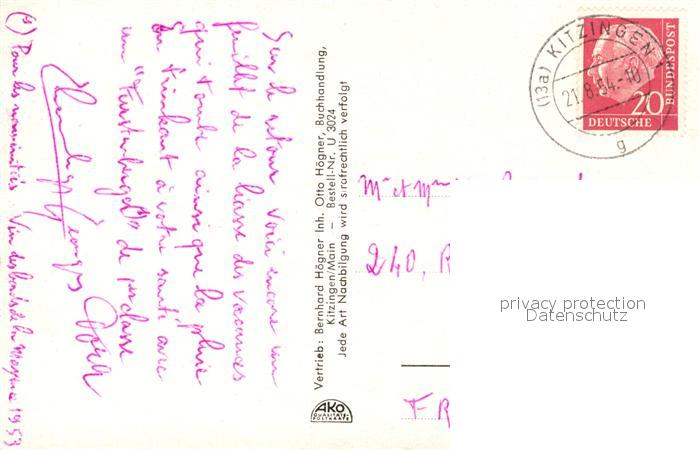 Sur le retour voici encore un
feuillet de la liasse des vacances
qui tombe ainsi que la pluie
En trinquant à votre santé avec
un "Fürstenberger"(1) de 1re classe
Georges
(1) Pour les : Vin des bords de la 1953
Vertrieb: Bernhard Högner Inh. Otto Högner, Buchhandlung,
Kitzingen/Main – Bestell-Nr. U 3024
Jede Art Nachbildung wird strafrechtlich verfolgt
AKO
QUALITÄTS-
POSTKARTE
(13a) KITZINGEN
21.8.54.-18
g
20
DEUTSCHE
BUNDESPOST
Mr et Mme
240, R
FR
privacy protection
Datenschutz